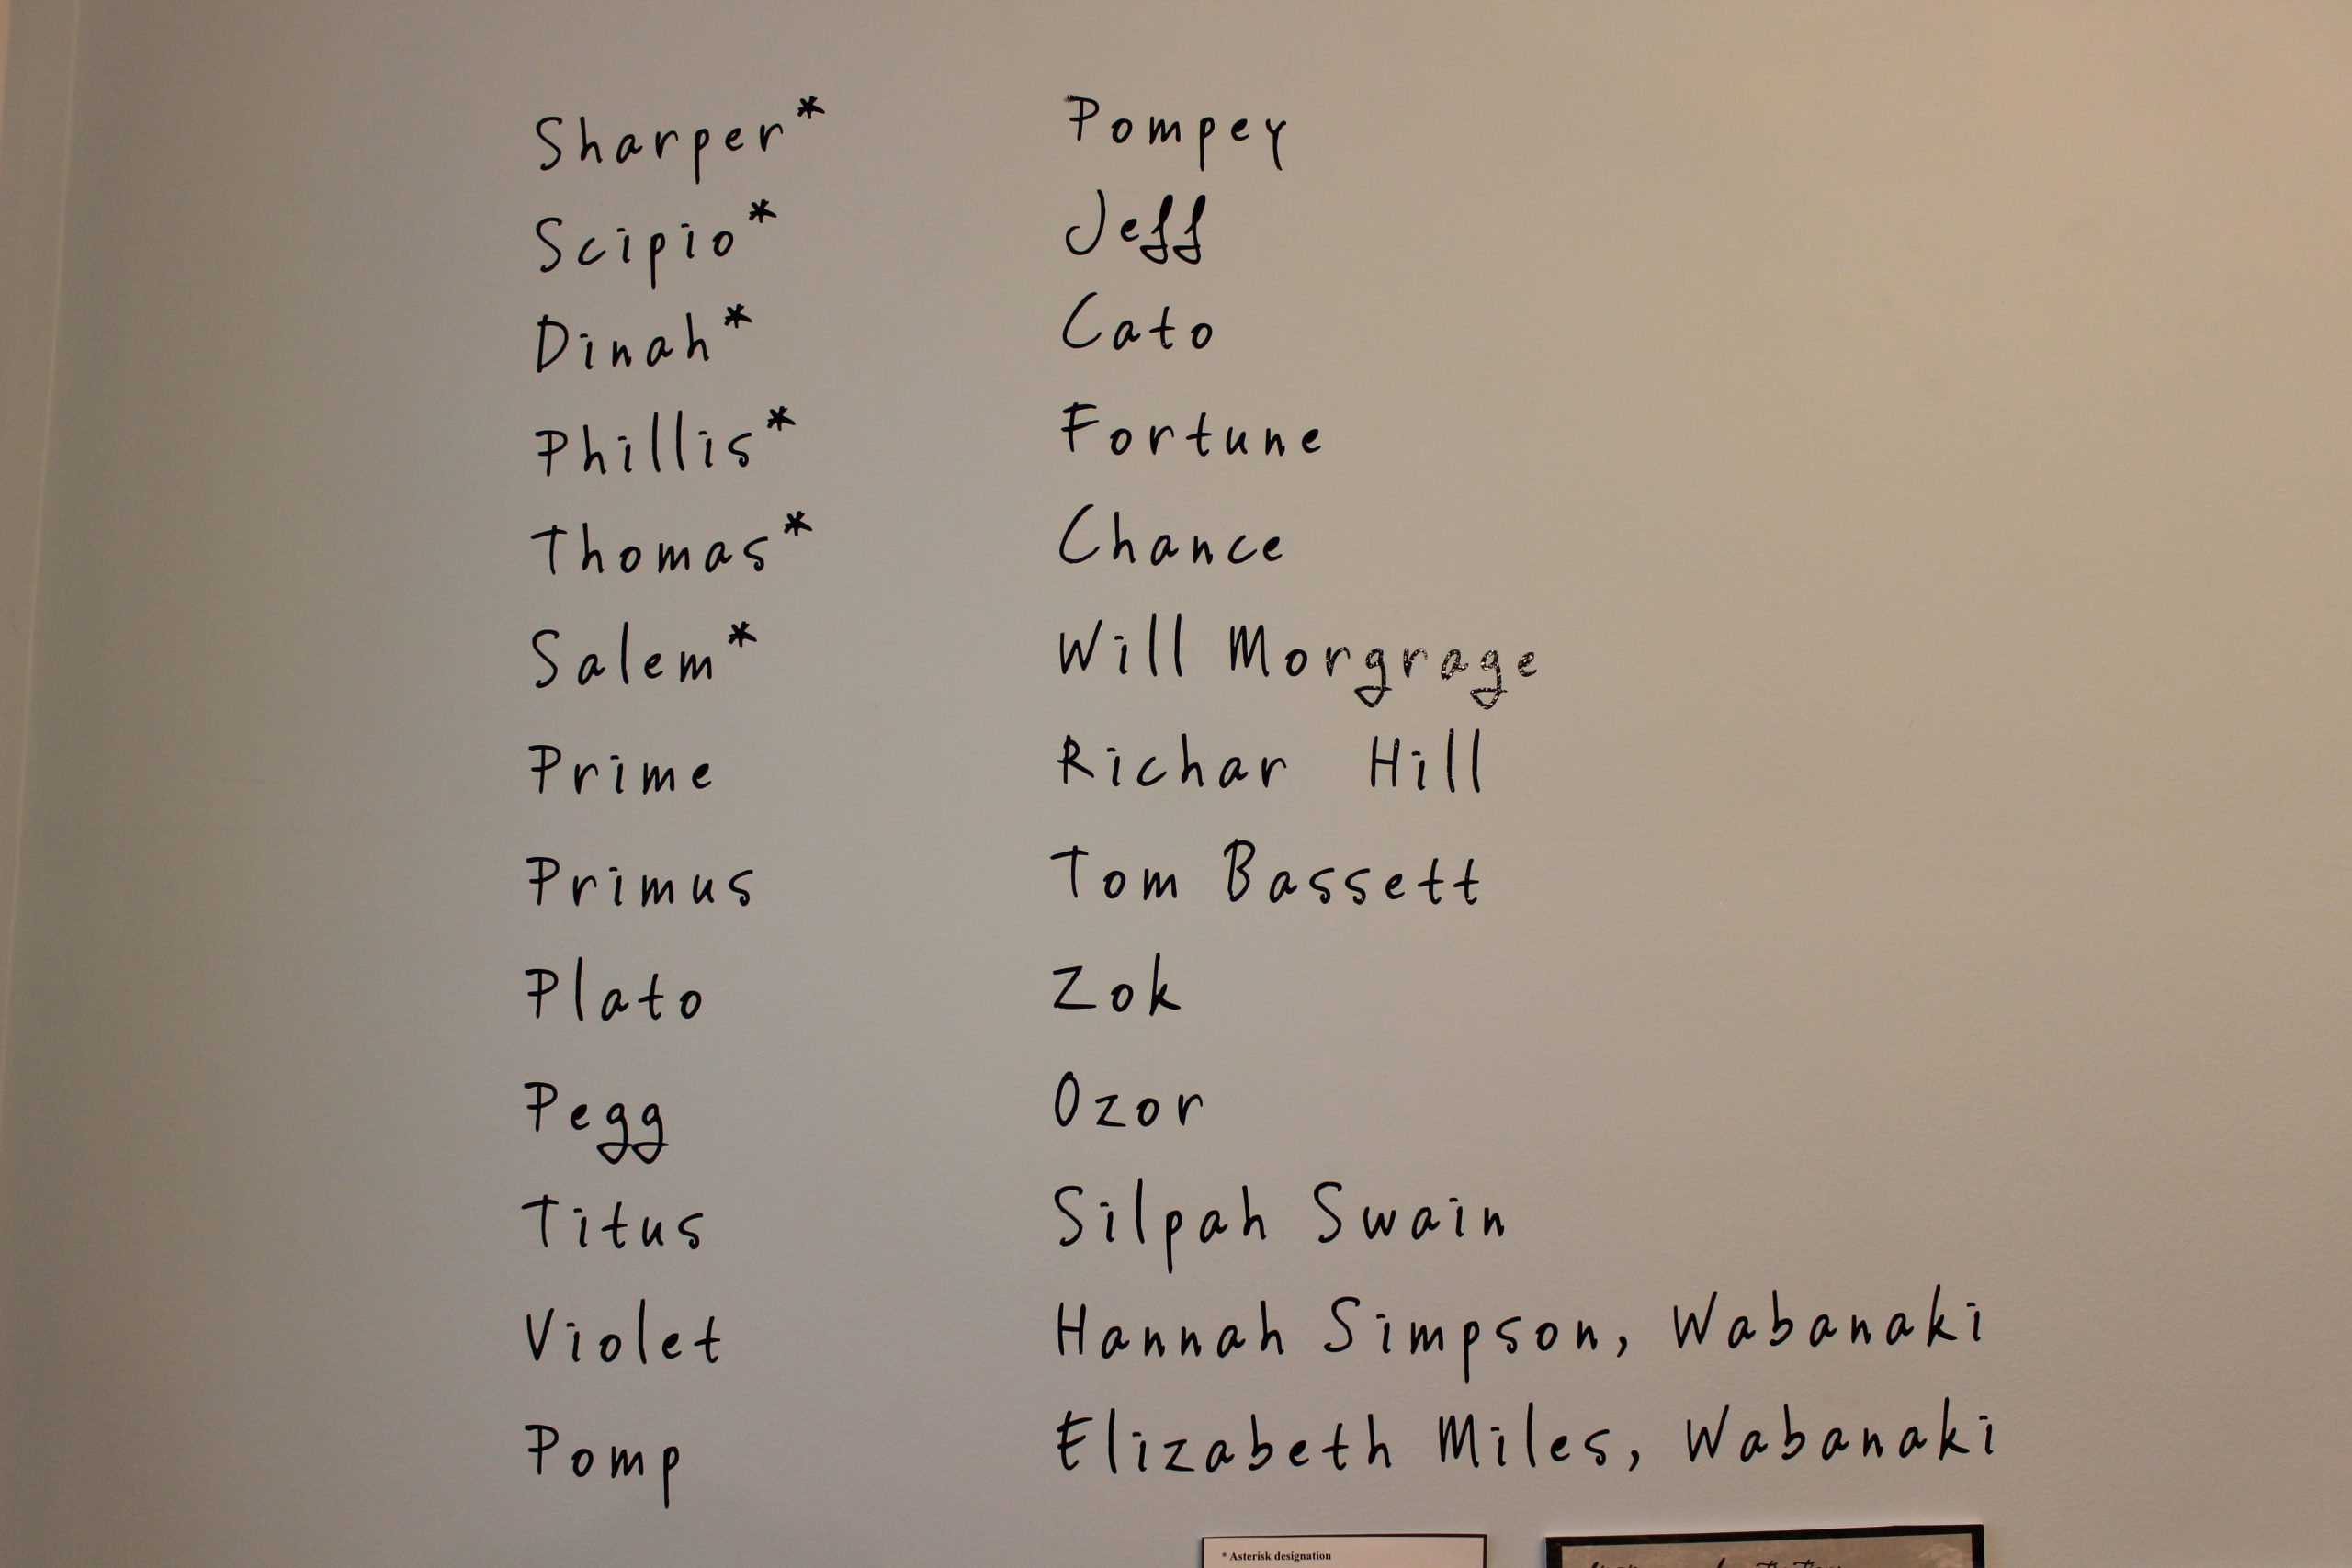 Sharper*
Scipio*
Dinah*
Phillis*
Thomas*
Salem*
Prime
Primus
Plato
Pegg
Titus
Violet
Pomp
Pompey
Jeff
Cato
Fortune
Chance
Will Morgrage
Richar Hill
Tom Bassett
Zok
Ozor
Silpah Swain
Hannah Simpson, Wabanaki
Elizabeth Miles, Wabanaki
* Asterisk designation